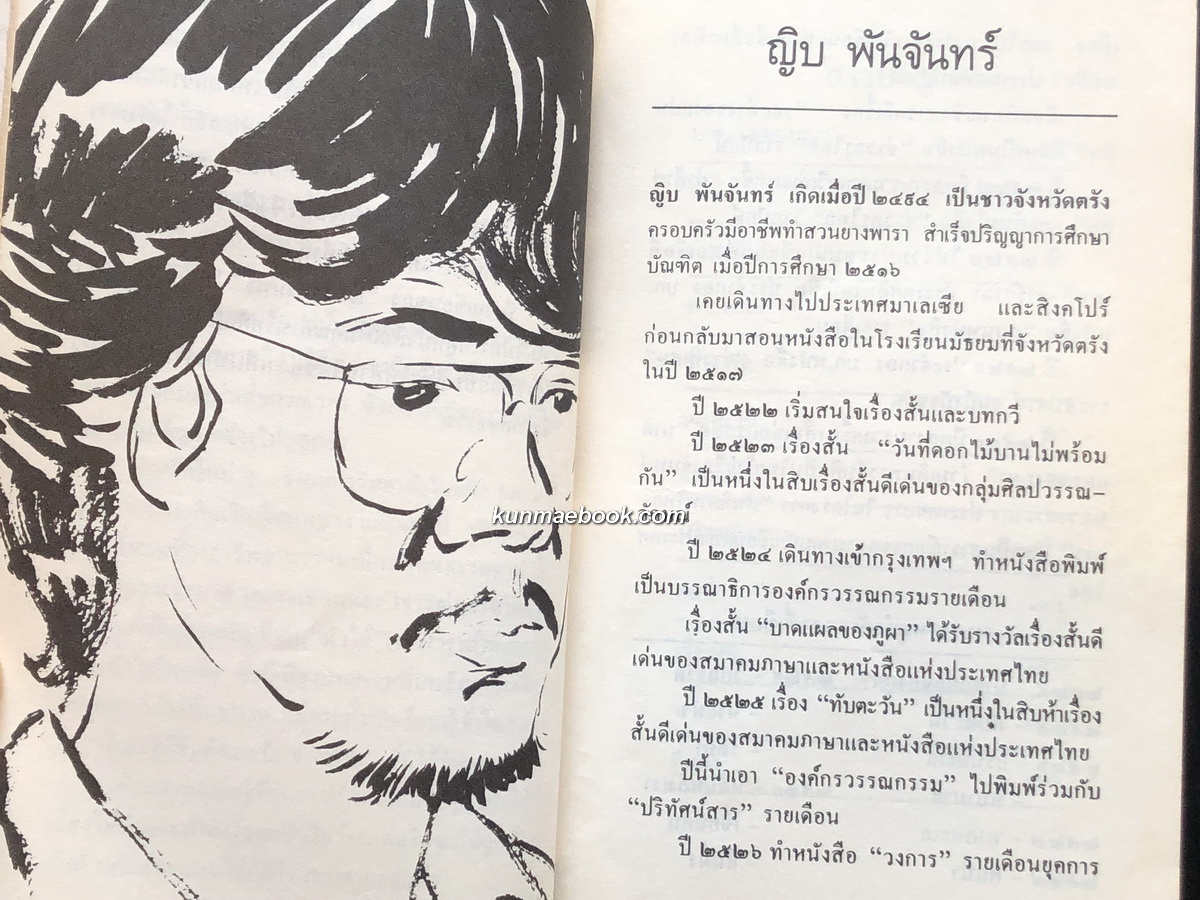 ญิบ พันจันทร์
ญิบ พันจันทร์ เกิดเมื่อปี ๒๔๙๔ เป็นชาวจังหวัดตรัง
ครอบครัวมีอาชีพทำสวนยางพารา สำเร็จปริญญาการศึกษา
บัณฑิต เมื่อปีการศึกษา ๒๕๑๖
เคยเดินทางไปประเทศมาเลเซีย และสิงคโปร์
ก่อนกลับมาสอนหนังสือในโรงเรียนมัธยมที่จังหวัดตรัง
ในปี ๒๕๑๗
ปี ๒๕๒๒ เริ่มสนใจเรื่องสั้นและบทกวี
ปี ๒๕๒๓ เรื่องสั้น “วันที่ดอกไม้บานไม่พร้อม
กัน” เป็นหนึ่งในสิบเรื่องสั้นดีเด่นของกลุ่มศิลปวรรณ–
kunmaebook.com
ปี ๒๕๒๔ เดินทางเข้ากรุงเทพฯ ทำหนังสือพิมพ์
เป็นบรรณาธิการองค์กรวรรณกรรมรายเดือน
เรื่องสั้น “บาดแผลของภูผา” ได้รับรางวัลเรื่องสั้นดี
เด่นของสมาคมภาษาและหนังสือแห่งประเทศไทย
ปี ๒๕๒๕ เรื่อง “ทับตะวัน” เป็นหนึ่งในสิบห้าเรื่อง
สั้นดีเด่นของสมาคมภาษาและหนังสือแห่งประเทศไทย
ปีนี้นำเอา “องค์กรวรรณกรรม” ไปพิมพ์ร่วมกับ
“ปริทัศน์สาร” รายเดือน
ปี ๒๕๒๖ ทำหนังสือ “วงการ” รายเดือนยุคการ